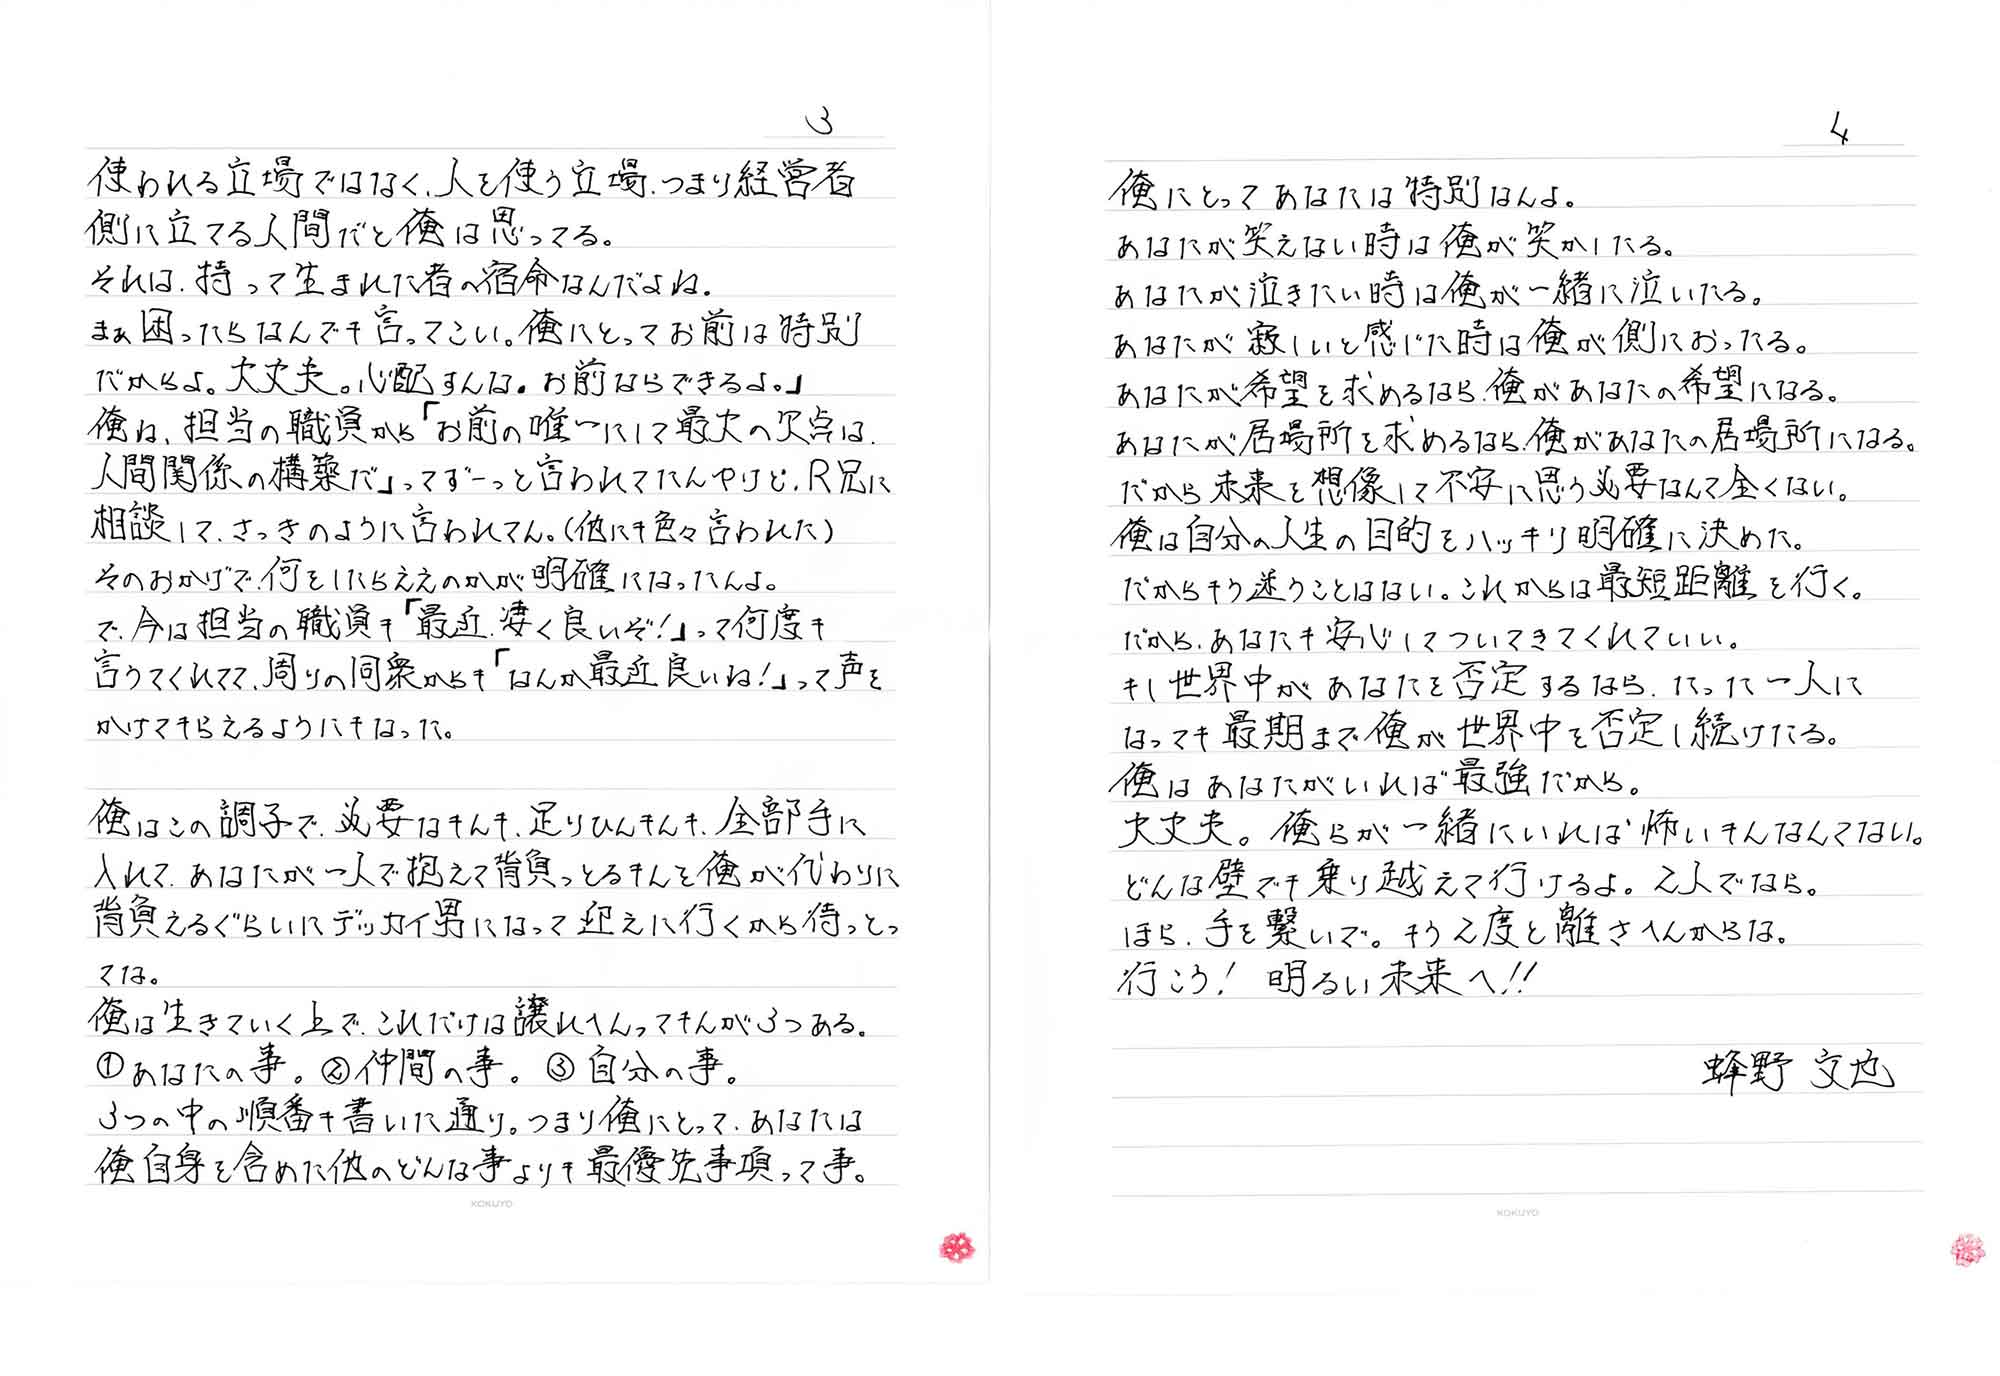 3
使われる立場ではなく、人を使う立場、つまり経営者
側に立てる人間だと俺は思ってる。
それは、持って生まれた者の宿命なんだよね。
まぁ困ったらなんでも言ってこい。俺にとってお前は特別
だからよ。大丈夫。心配すんな。お前ならできるよ。」
俺ね、担当の職員から「お前の唯一にして最大の欠点は、
人間関係の構築だ」ってずーっと言われてたんやけど、R兄に
相談して、さっきのように言われてん。(他にも色々言われた)
そのおかげで、何をしたらええのかが明確になったんよ。
で、今は担当の職員も「最近、凄く良いぞ!」って何度も
言うてくれてて、周りの同衆からも「なんか最近良いね!」って声を
かけてもらえるようにもなった。
俺はこの調子で、必要なもんも、足りひんもんも、全部手に
入れて、あなたが一人で抱えて背負っとるもんを俺が代わりに
背負えるぐらいにデッカイ男になって迎えに行くから待っとっ
てな。
俺は生きていく上で、これだけは譲れへんってもんが3つある。
①あなたの事。②仲間の事。③自分の事。
3つの中の順番も書いた通り。つまり俺にとって、あなたは
俺自身を含めた他のどんな事よりも最優先事項って事。
KOKUYO
4
俺にとってあなたは特別なんよ。
あなたが笑えない時は俺が笑かしたる。
あなたが泣きたい時は俺が一緒に泣いたる。
あなたが寂しいと感じた時は俺が側におったる。
あなたが希望を求めるなら、俺があなたの希望になる。
あなたが居場所を求めるなら、俺があなたの居場所になる。
だから未来を想像して不安に思う必要なんて全くない。
俺は自分の人生の目的をハッキリ明確に決めた。
だからもう迷うことはない。これからは最短距離を行く。
だから、あなたも安心してついてきてくれていい。
もし世界中があなたを否定するなら、たった一人に
なっても最期まで俺が世界中を否定し続けたる。
俺はあなたがいれば最強だから。
大丈夫。俺らが一緒にいれば怖いもんなんてない。
どんな壁でも乗り越えて行けるよ。2人でなら。
ほら、手を繋いで。もう2度と離さへんからな。
行こう! 明るい未来へ!!
蜂野 文也
KOKUYO